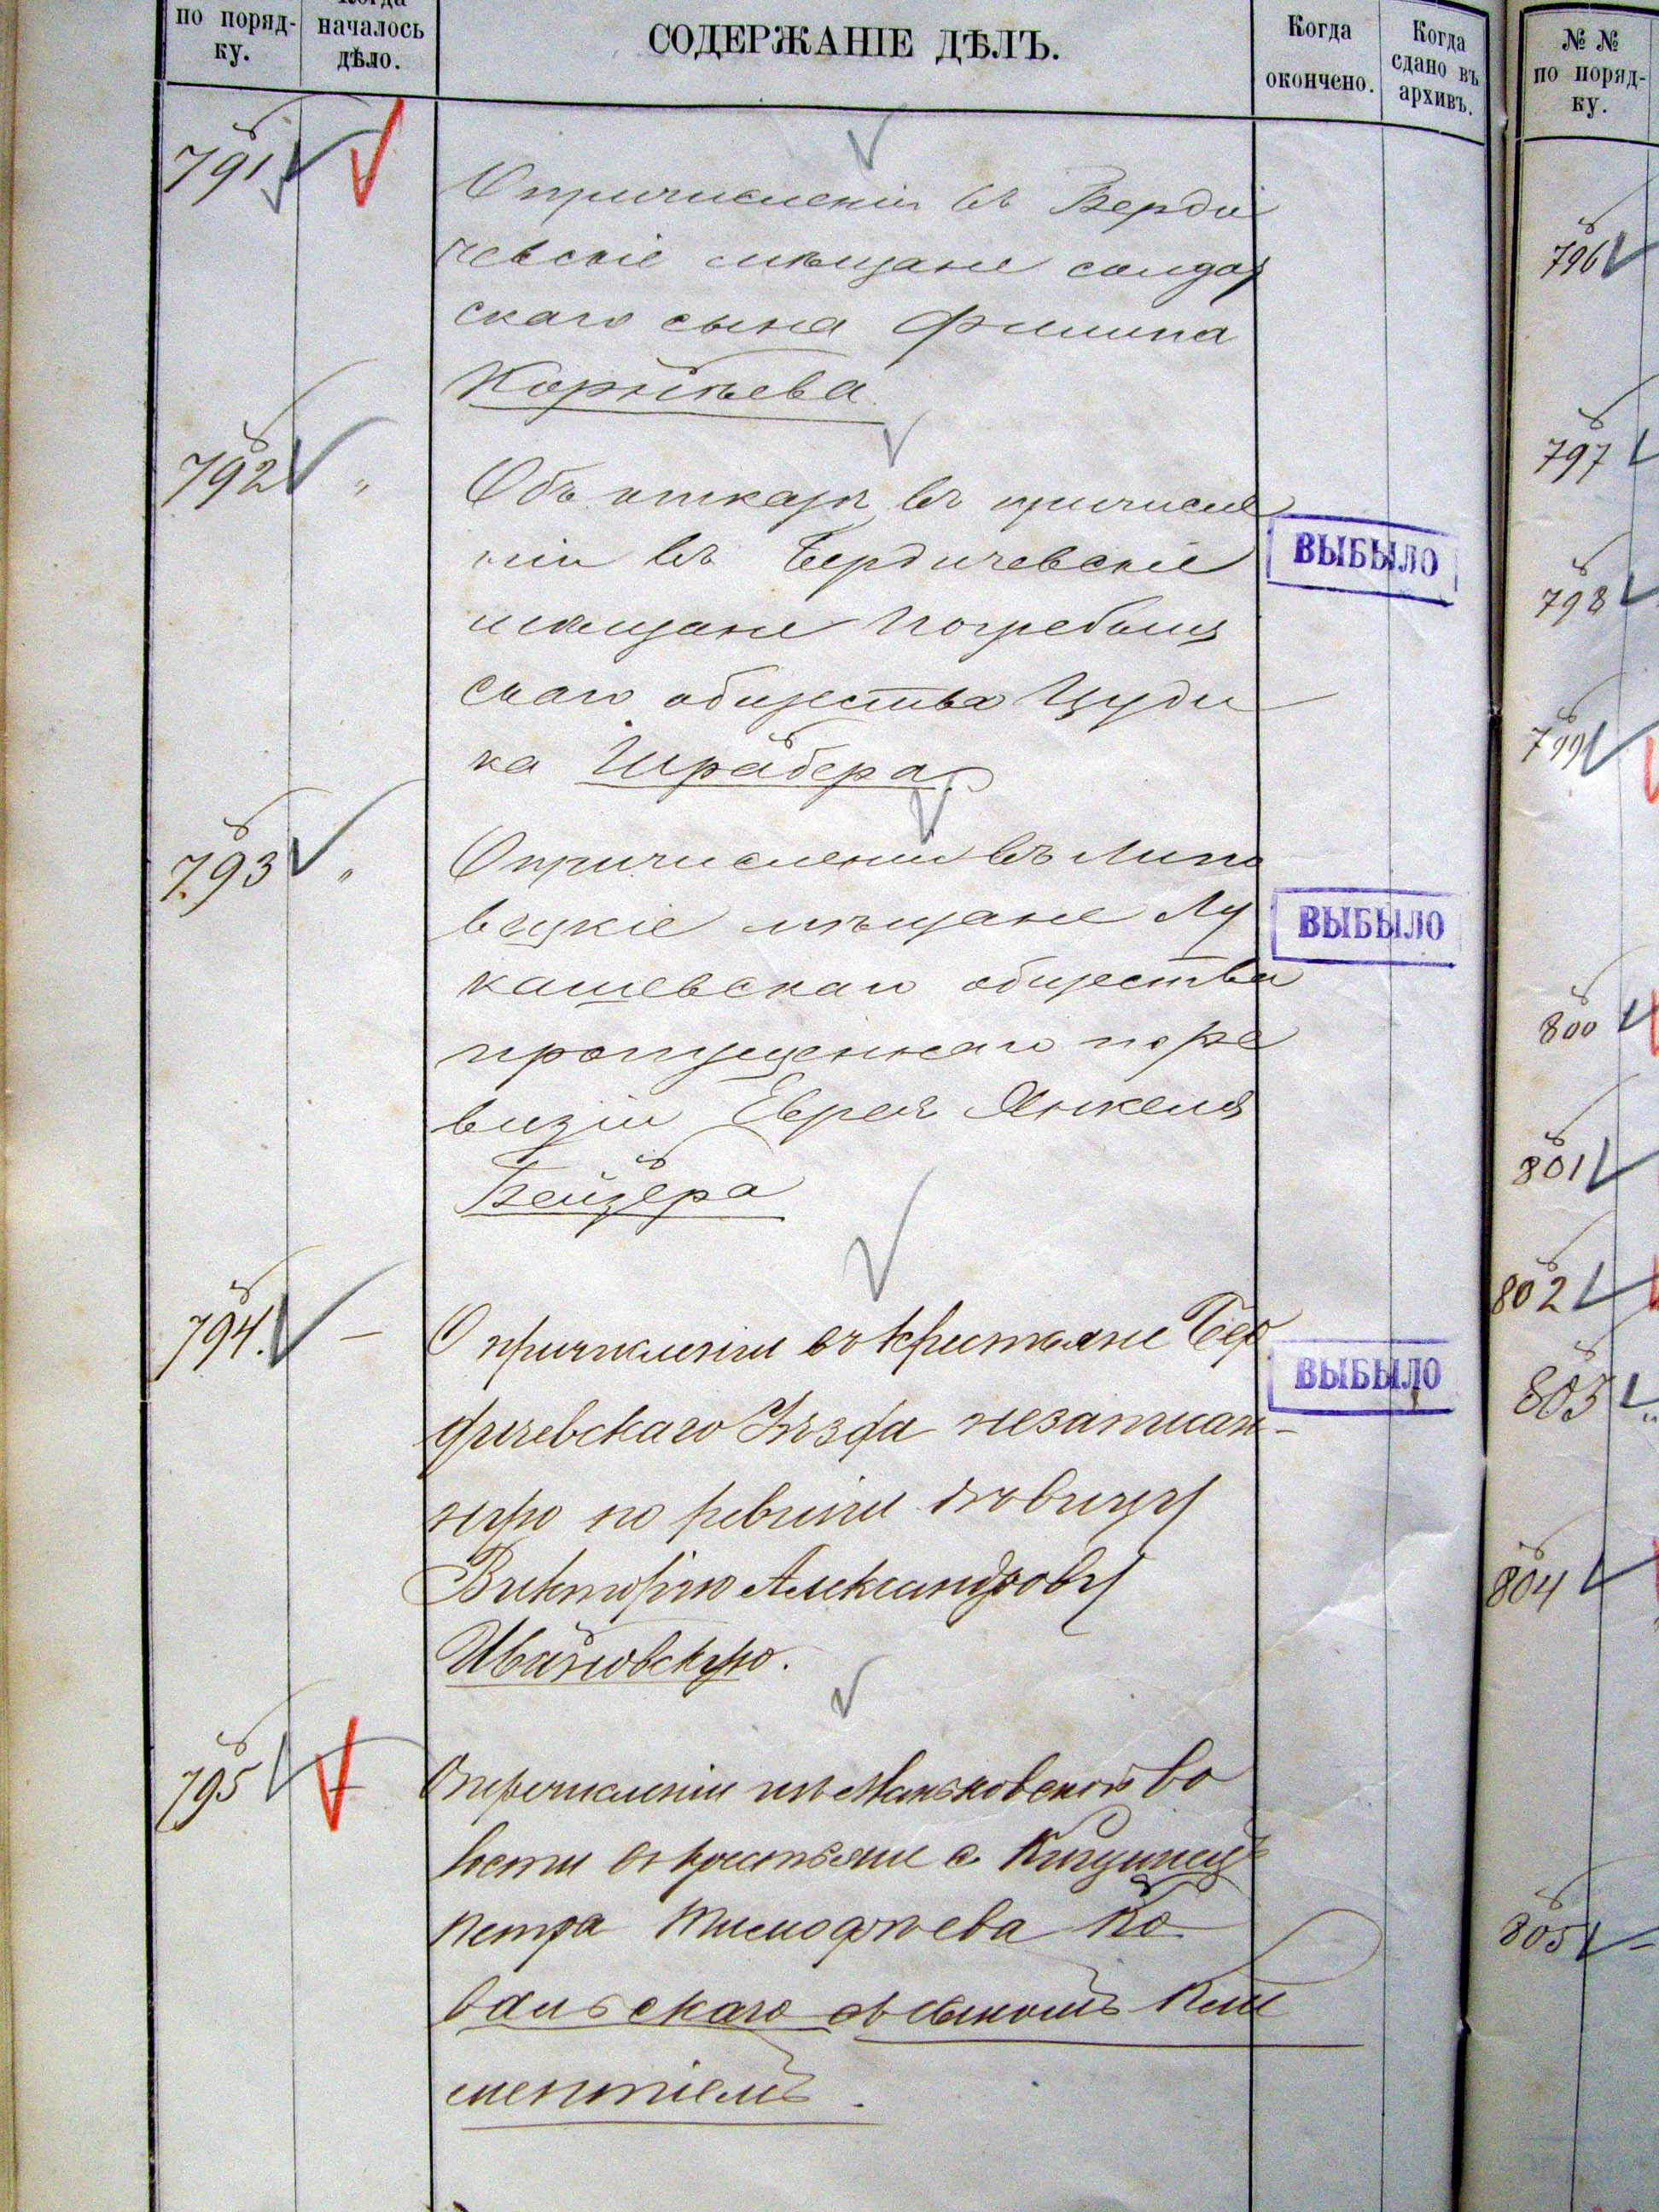 Когда
по поряд-
ку.
началось
дѣло.
СОДЕРЖАНІЕ ДѢЛЪ.
Когда
окончено.
Когда
сдано въ
архивъ.
№ №
по поряд-
ку.
791
О причисленіи въ Берди
чевскіе мѣщане солдат
скаго сына Филипа
Корнѣева
792 "
Объ отказѣ въ причисле
ніи въ Бердичевскіе
мѣщане Погребыщ
скаго общества Иуди
ка Шрабера
ВЫБЫЛО
793 "
О причисленіи въ Липо
вецкіе мѣщане Лу
кашевскаго общества
пропущеннаго по ре
визіи Еврея Янкеля
Бейзера
ВЫБЫЛО
794. –
О причисленіи въ крестьяне Бер
дичевскаго Уѣзда незаписан-
ную по ревизіи дѣвицу
Викторію Александрову
Ивановскую.
ВЫБЫЛО
795 –
О перечисленіи изъ Маньковской во
лости въ крестьяне с.
Петра Тимофѣева Ко
вальскаго съ сыномъ Кли
ментіемъ.
796
797
798
799
800
801
802
803 "
804
805 –